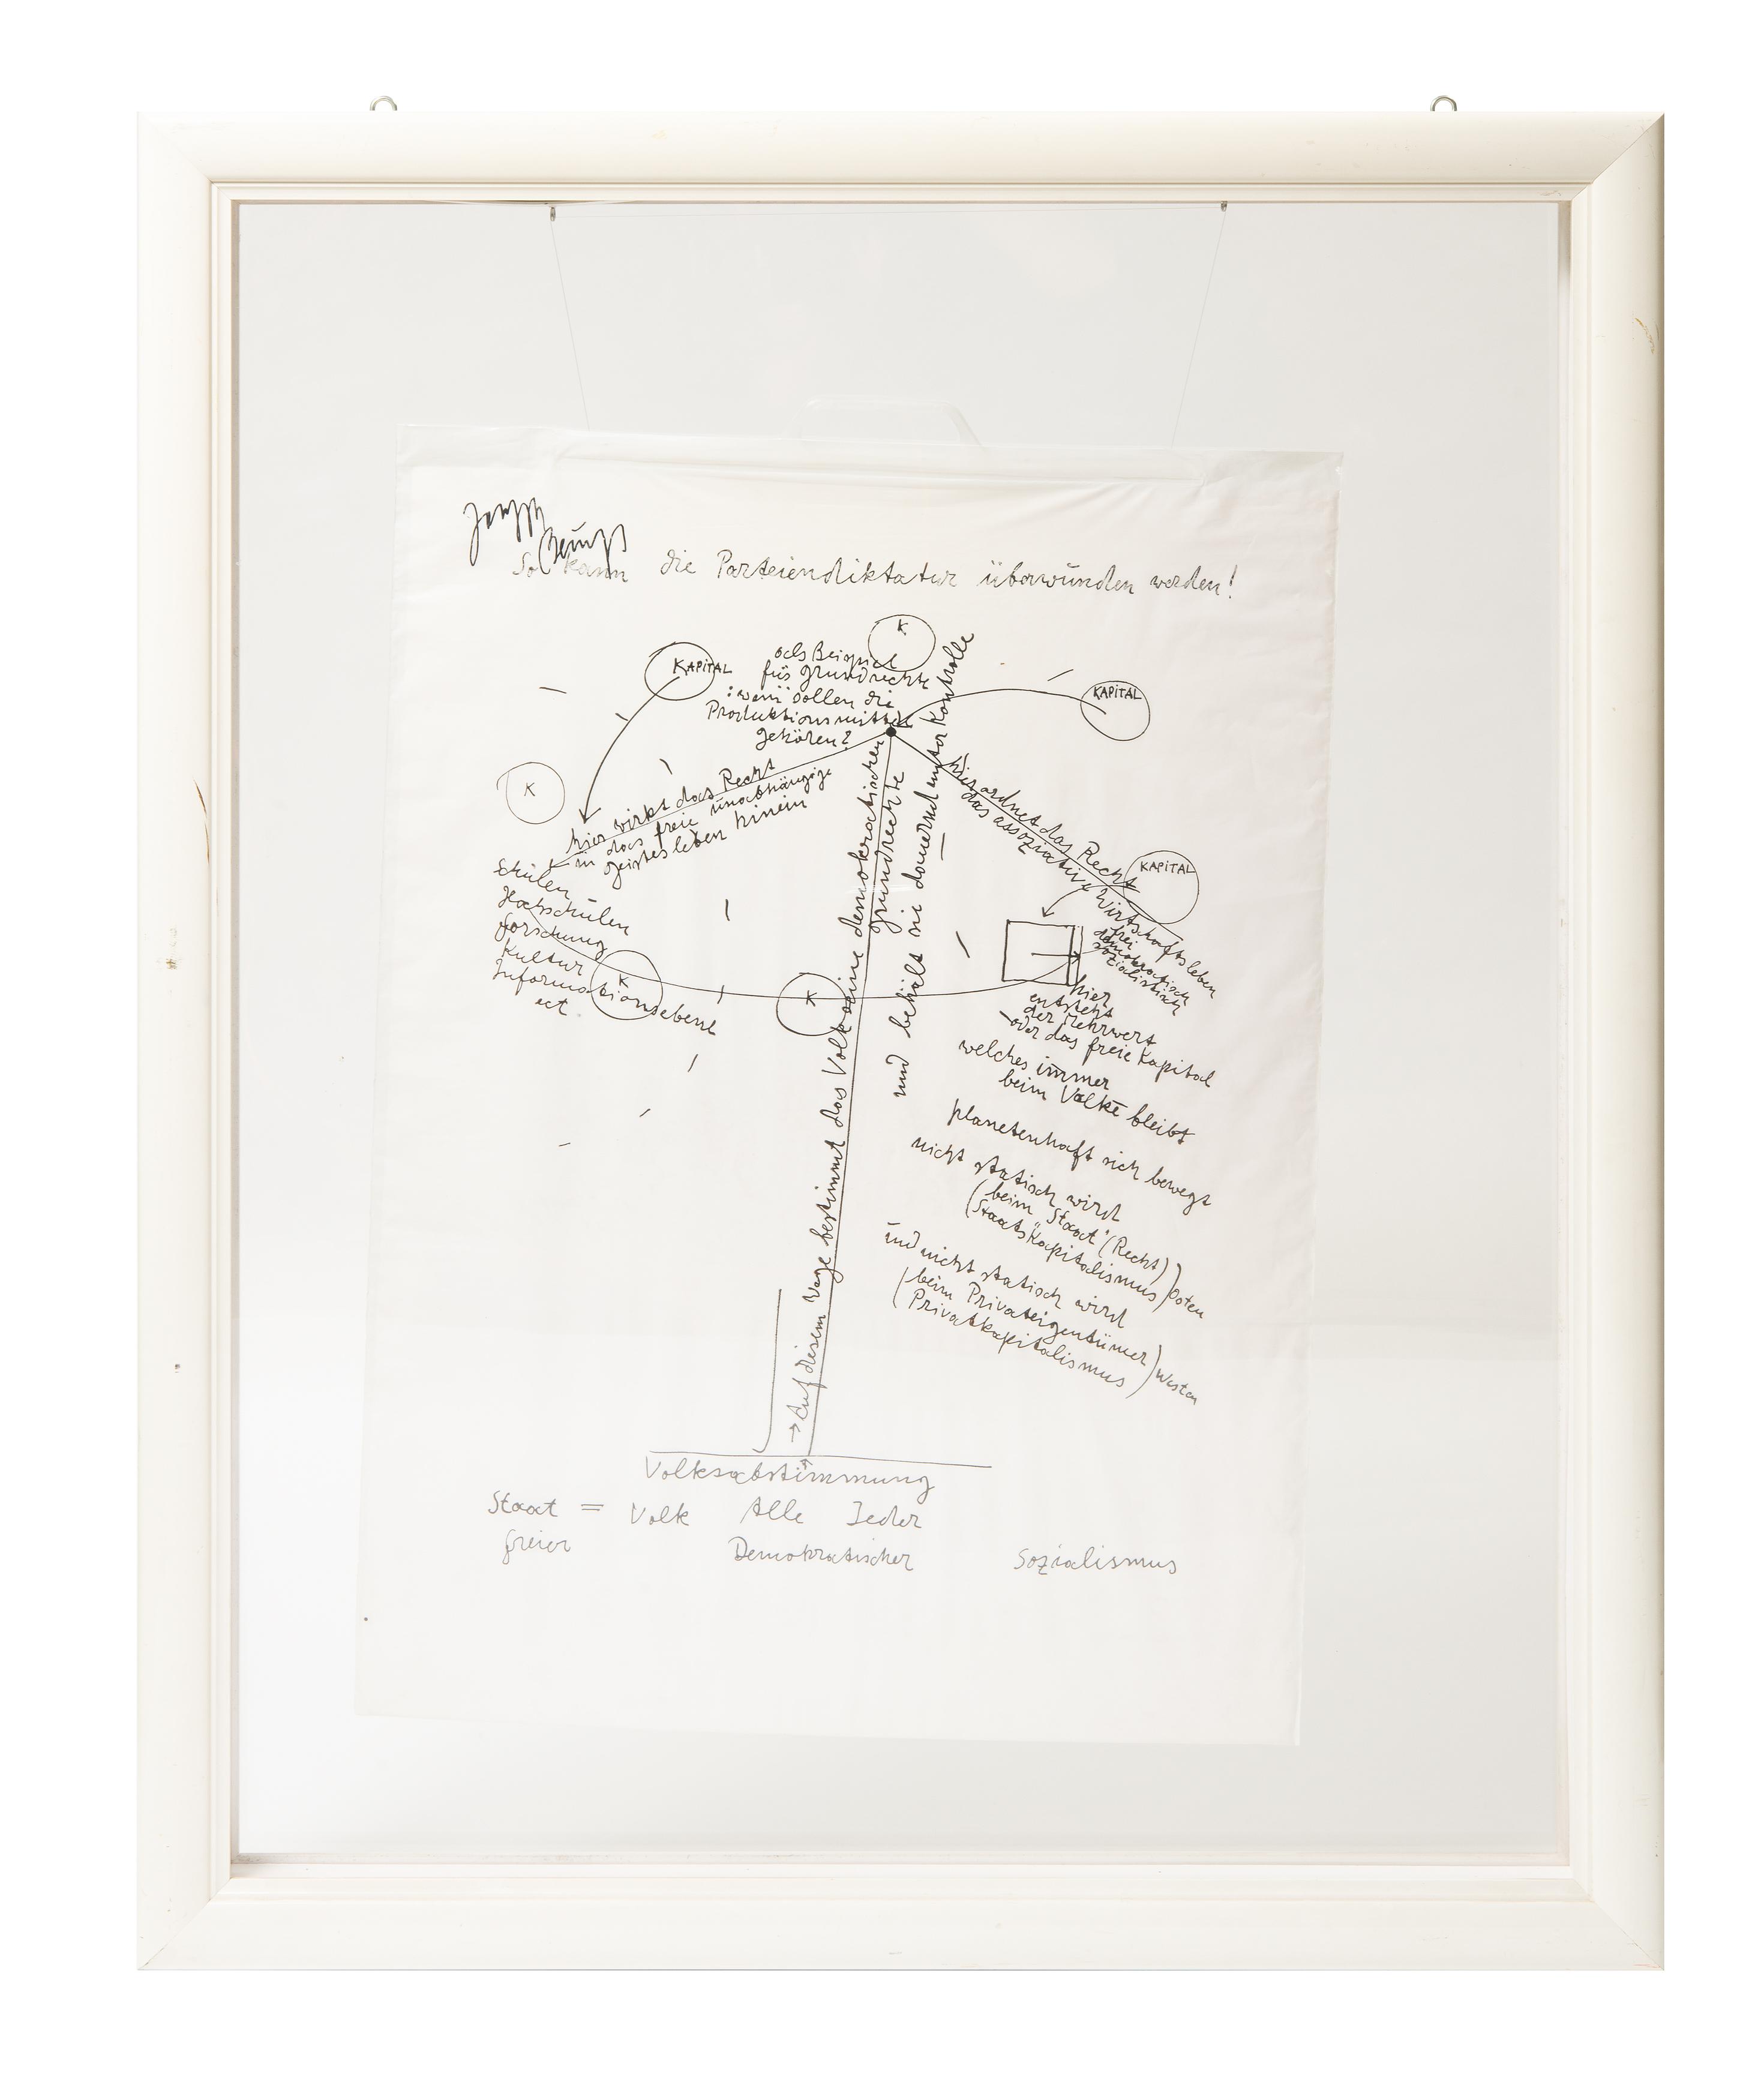 Joseph
Beuys
So kann die Parteiendiktatur überwunden werden!
K
KAPITAL
als Beispiel
für Grundrechte
: wem sollen die
Produktionsmittel
gehören?
KAPITAL
K
hier wirkt das Recht
in das freie unabhängige
Geistesleben hinein
Schulen
Hochschulen
Forschung
Kultur
Informationsebene
ect.
K
K
→ Auf diesem Wege bestimmt das Volk seine demokratischen
Grundrechte
und behält sie dauernd unter Kontrolle
hier ordnet das Recht
das assoziative Wirtschaftsleben
KAPITAL
frei
demokratisch
sozialistisch
hier
entsteht
der Mehrwert
oder das freie Kapital
welches immer
beim Volke bleibt
planetenhaft sich bewegt
nicht statisch wird
(beim "Staat" (Recht))
(Staatskapitalismus) Osten
und nicht statisch wird
(beim Privateigentümer)
(Privatkapitalismus) Westen
Volksabstimmung
Staat = Volk Alle Jeder
freier Demokratischer Sozialismus